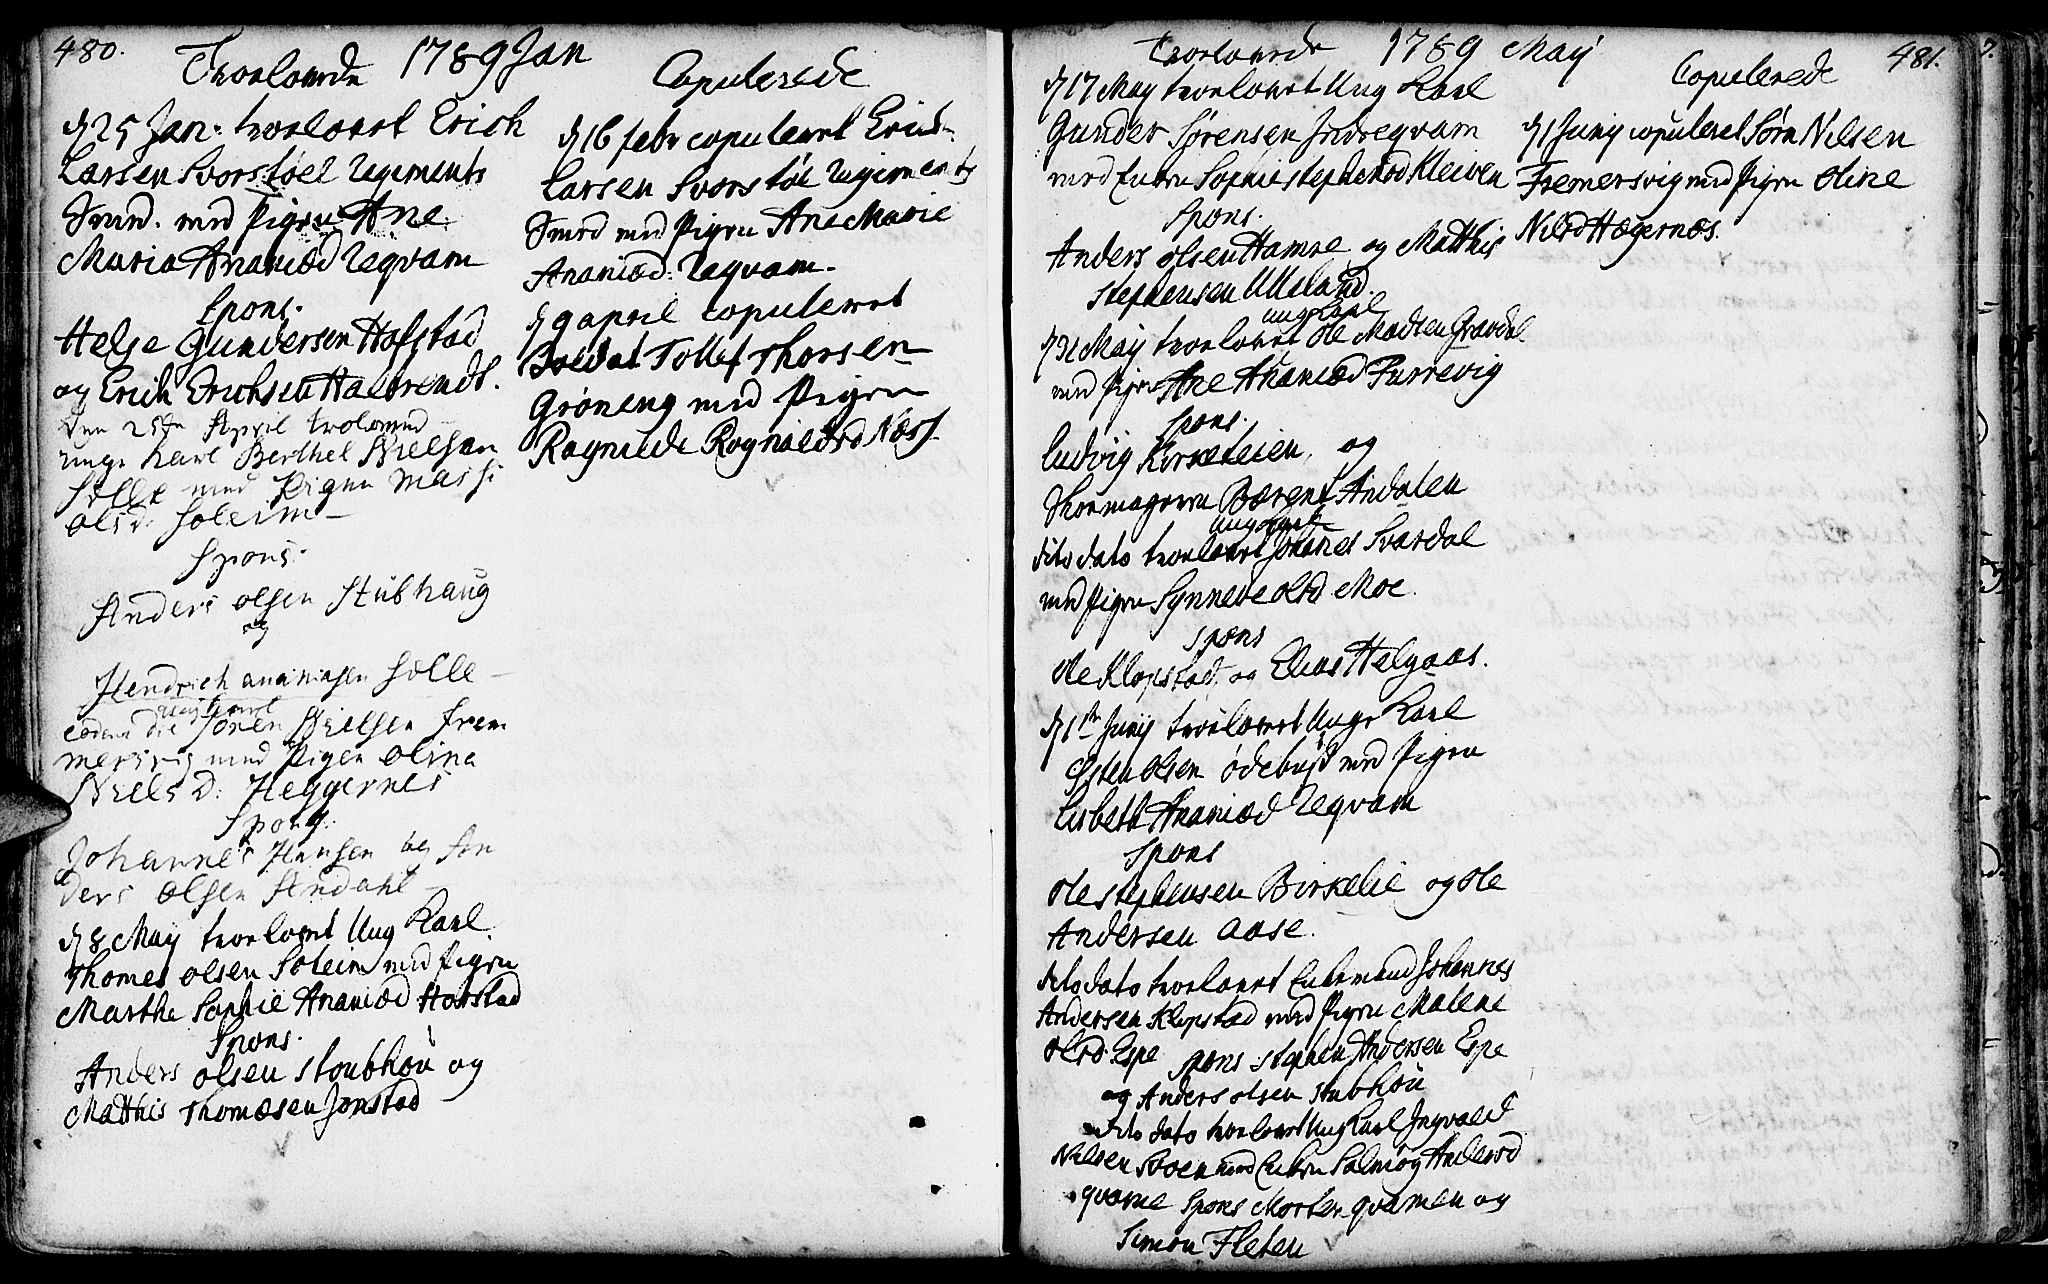 480.
Troelovede 1789 Jan
d 25 Jan: troelovet Erich
Larsen Svorstøel Regiments
Smed. med Pigen Ane
Maria Ananiæd Reqvam
Spons.
Helje Gundersen Hafstad
og Erich Erichsen Halbrendt.
Den 25de April troloved
unge Karl Berthel Nielsen
Solle med Pigen Massi
Olsd. Soleim
Spons.
Anders Olsen Stubhaug
og
Hendrich ananiasen Solle
ung Karl
eodem die Sören Nielsen Frem
mersvig med Pigen Olina
Niels D: Heggernes
Spons.
Johannes Hansen og An
ders Olsen Andahl
d 8 May troelovet Ung Karl
Thomes Olsen Soleim med Pigen
Marthe Sophie Ananiæd Hafstad
Spons.
Anders Olsen Stoubhou og
Matthis Thomæsen Jonstad
Copulerede
d 16 febr copuleret Erich
Larsen Svorstøl Regiments
Smed med Pigen Ane Marie
Ananiæd: Reqvam.
d 9 april copuleret
Soldat Tollef Thorsen
Grøneng med Pigen
Ragnilde Rognaldsd Næss
Troelovede 1789 May
481.
d 17 May troelovet Ung Karl
Gunder Sørensen Indreqvam
med Enken Sophie Stephensd Kleiven
Spons.
Anders Olsen Hamre og Matthis
Stephensen Ulleland.
ung Karl
d 31 May troelovet Ole Madsen Gravdal
med Pigen Ane Ananiæd Furrevig
Spons.
Ludvig Kirketeien, og
Skomageren Bærent Andalen
ung Karl
dito dato troelovet Johanes Svardal
med Pigen Synneve Olsd Moe.
Spons
Ole Klopstad, og Elias Helgaas.
d 1ste Junij troelovet Unge Karl
Østen Olsen Ødebyst med Pigen
Lisbeth Ananiæd Reqvam
Spons
Ole Stephensen Birkelie og Ole
Andersen Aase.
dito dato troelovet Enkemand Johannes
Andersen Klopstad med Pigen Malene
Olsd. Espe Spons: Stephen Andersen Espe
og Anders Olsen Stubhou
dito dato troelovet Ung Karl Ingvald
Nilsen Steen med Enken Salmøy Andersd
Qvame Spons Morten Qvamen og
Simon Fleten
Copulerede
d 1 Junij copuleret Sørn Nilsen
Fremersvig med Pigen Oline
Nilsd Hægernæs.